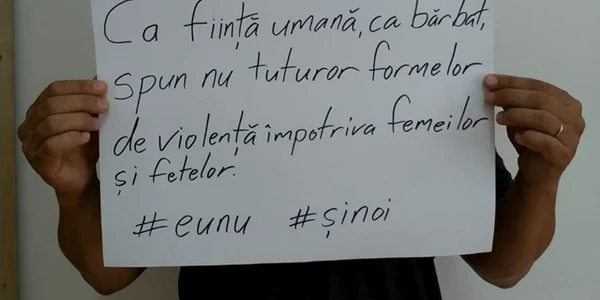 Ca ființă umană, ca bărbat,
spun nu tuturor formelor
de violență împotriva femeilor
și fetelor.
#eunu #șinoi